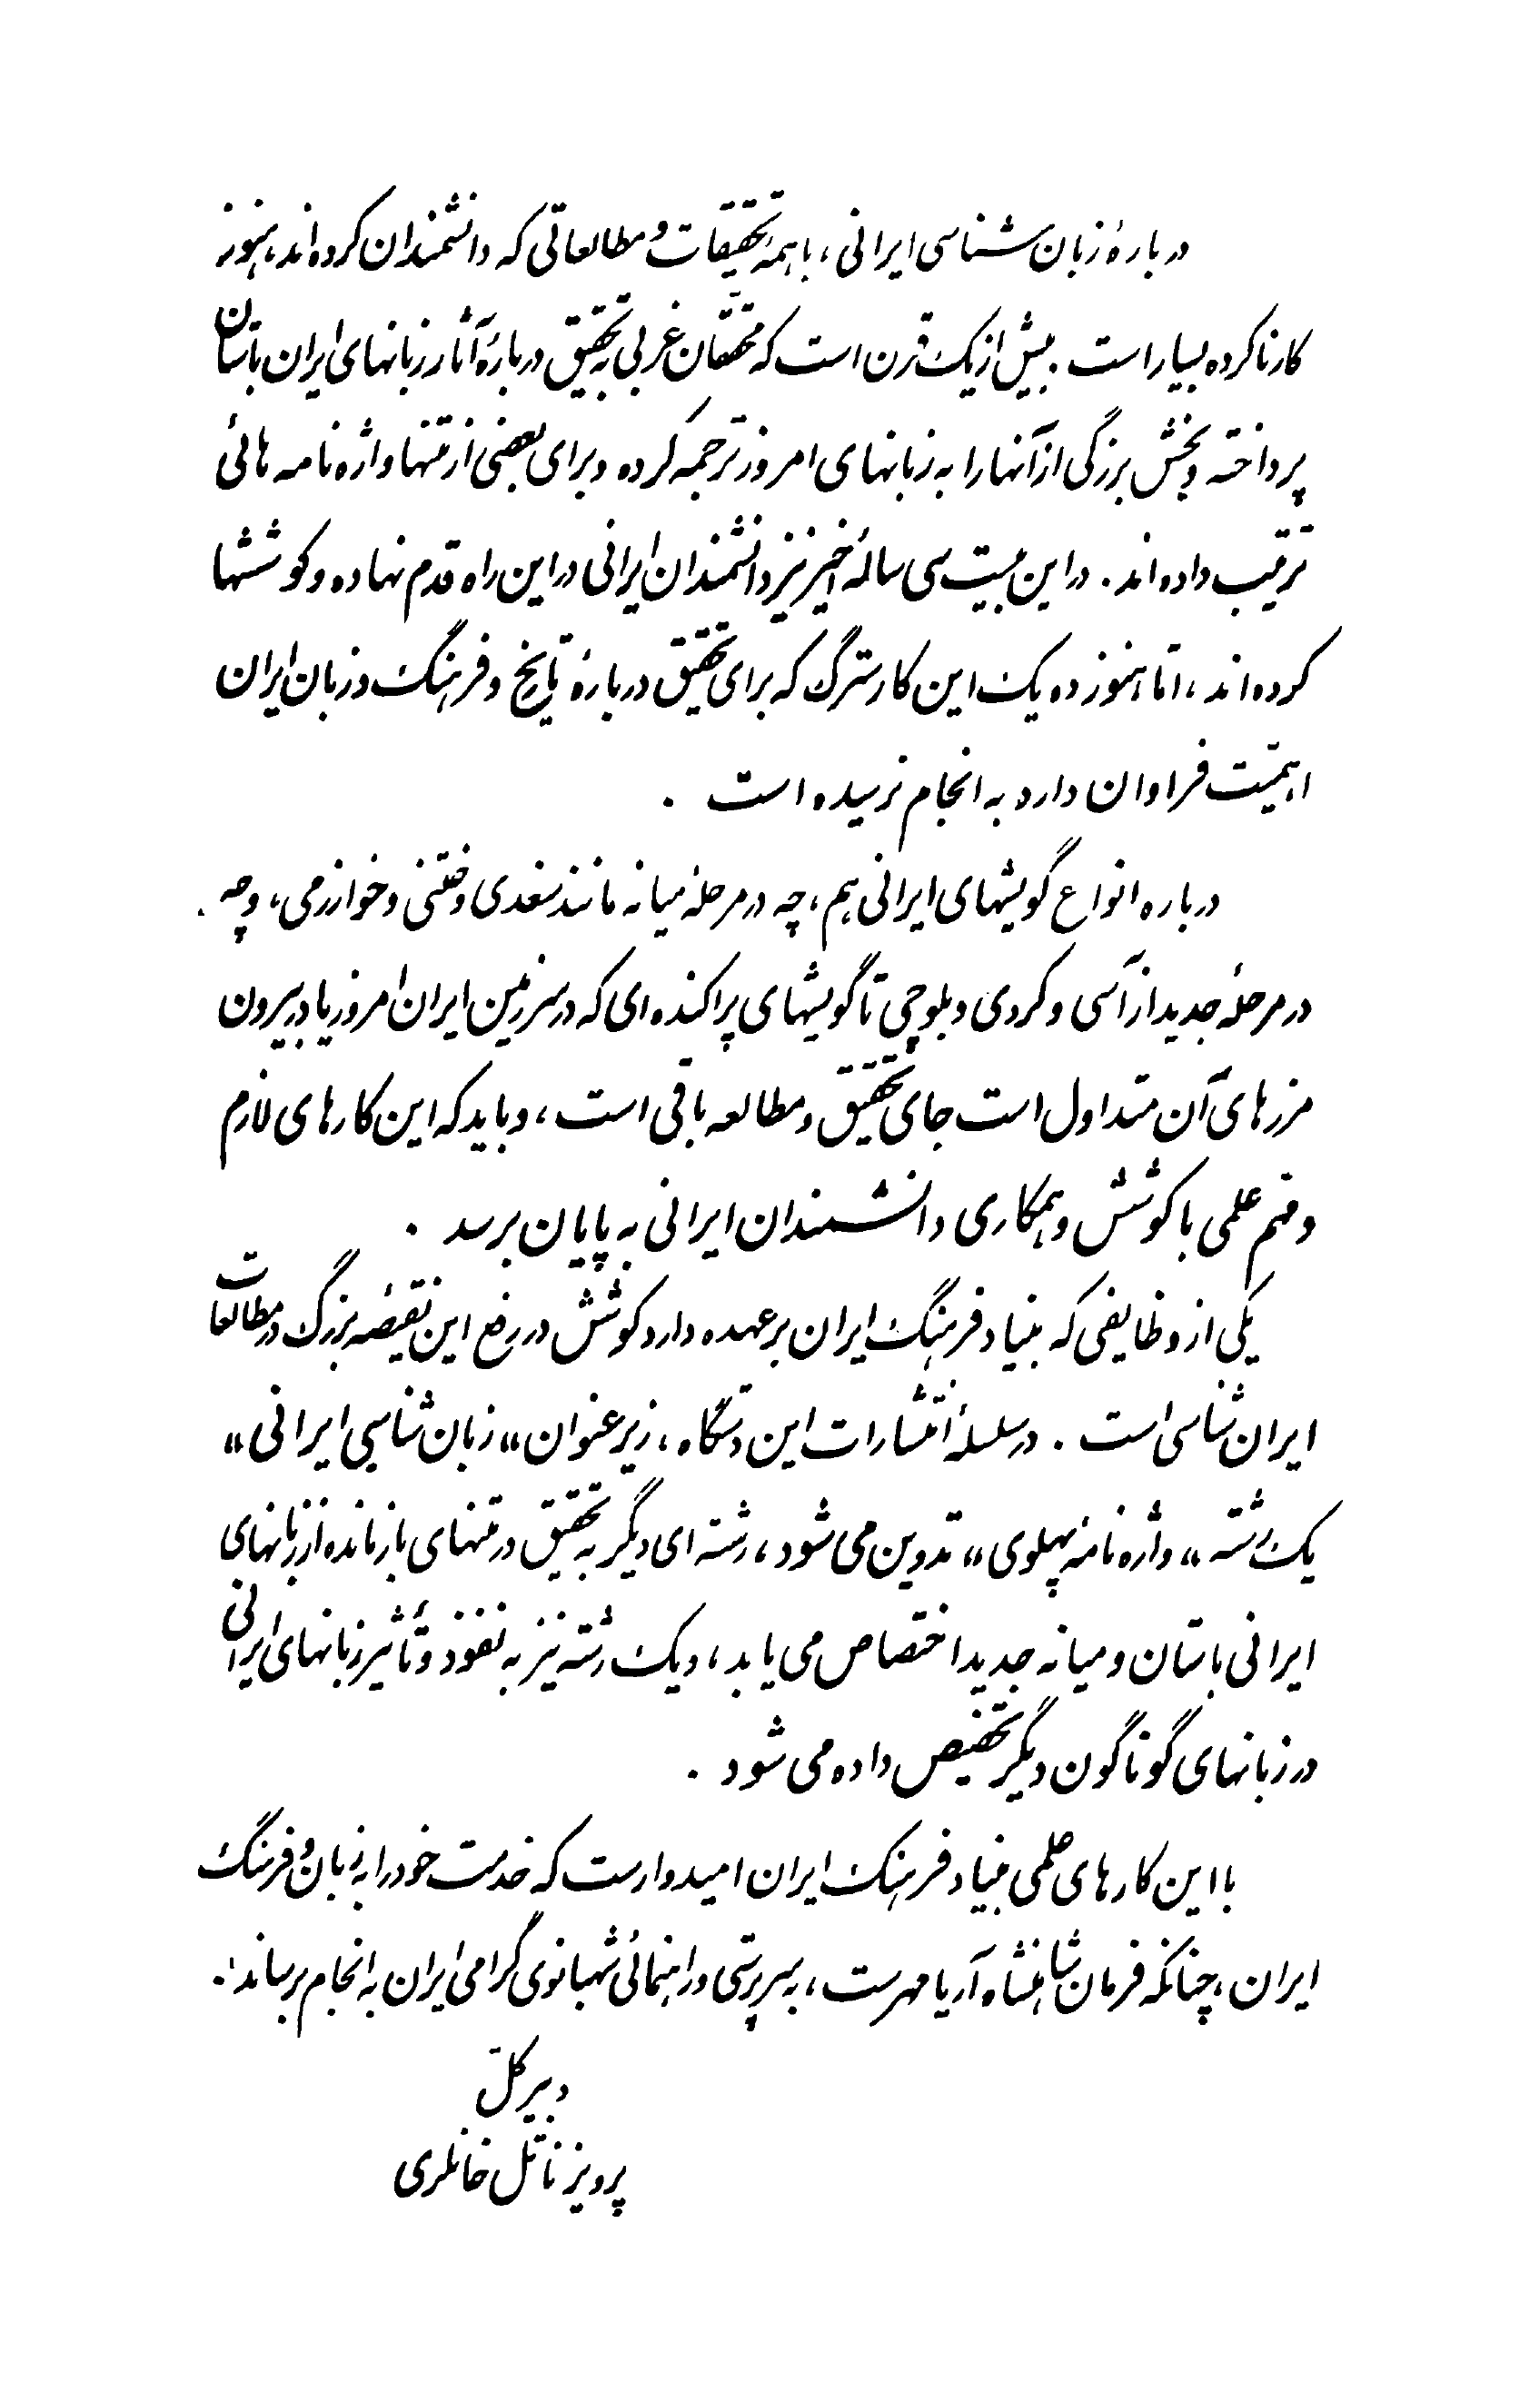 دربارهٔ زبان‌شناسی ایرانی، با همهٔ تحقیقات و مطالعاتی که دانشمندان کرده‌اند، هنوز
کار ناکرده بسیار است. بیش از یک قرن است که محققان غربی به تحقیق دربارهٔ آثار زبانهای ایران باستان
پرداخته و بخش بزرگی از آنها را به زبانهای امروز ترجمه کرده و برای بعضی از متنها واژه‌نامه‌هائی
ترتیب داده‌اند. در این بیست سی سالهٔ اخیر نیز دانشمندان ایرانی در این راه قدم نهاده و کوششها
کرده‌اند، امّا هنوز ده یک این کار سترگ که برای تحقیق دربارهٔ تاریخ و فرهنگ و زبان ایران
اهمّیت فراوان دارد به انجام نرسیده است.
درباره انواع گویشهای ایرانی هم، چه در مرحلهٔ میانه مانند سغدی و ختنی و خوارزمی، و چه
در مرحلهٔ جدید از آسی و کردی و بلوچی تا گویشهای پراکنده‌ای که در سرزمین ایران امروز یا در بیرون
مرزهای آن متداول است جای تحقیق و مطالعه باقی است، و باید که این کارهای لازم
و مهم علمی با کوشش و همکاری دانشمندان ایرانی به پایان برسد.
یکی از وظایفی که بنیاد فرهنگ ایران بر عهده دارد کوشش در رفع این نقیصهٔ بزرگ در مطالعات
ایران‌شناسی است. در سلسلهٔ انتشارات این دستگاه، زیر عنوان «زبان‌شناسی ایرانی»
یک رشته «واژه‌نامهٔ پهلوی» تدوین می‌شود، رشته‌ای دیگر به تحقیق در متنهای بازمانده از زبانهای
ایرانی باستان و میانه جدید اختصاص می‌یابد، و یک رشته نیز به نفوذ و تأثیر زبانهای ایرانی
در زبانهای گوناگون دیگر تخصیص داده می‌شود.
با این کارهای علمی بنیاد فرهنگ ایران امیدوارست که خدمت خود را به زبان و فرهنگ
ایران، چنانکه فرمان شاهنشاه آریامهرست، به سرپرستی و راهنمائی شهبانوی گرامی ایران به انجام برساند.
دبیر کلّ
پرویز ناتل خانلری